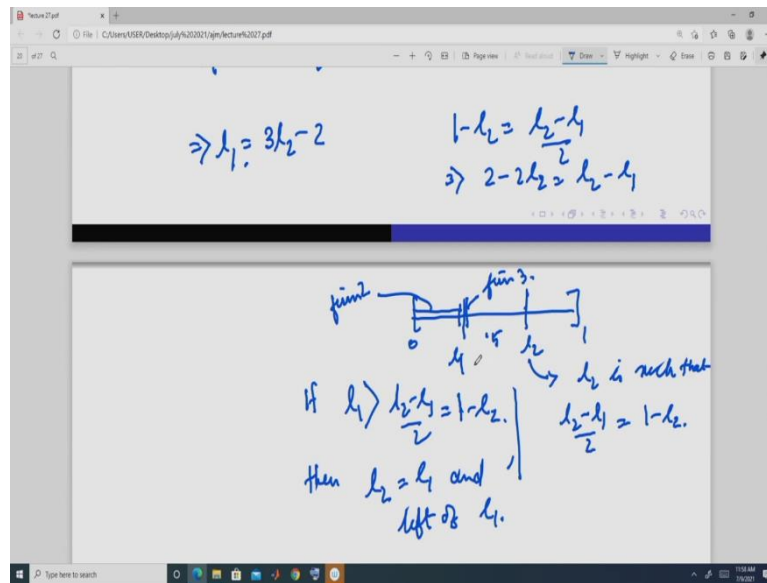 *lecture 27.pdf
File | C:/Users/USER/Desktop/july%202021/ajm/lecture%2027.pdf
of 27
Page view
Read aloud
Draw
Highlight
Erase
⇒ l₁ = 3l₂ - 2
1 - l₂ = (l₂ - l₁)/2
⇒ 2 - 2l₂ = l₂ - l₁
firm 2
firm 3.
0 l₁ .5 l₂ 1
If l₁ > (l₂ - l₁)/2 = 1 - l₂.
then l₂ = l₁ and
left of l₁.
l₂ is such that
(l₂ - l₁)/2 = 1 - l₂.
Type here to search
11:58 AM
7/9/2021